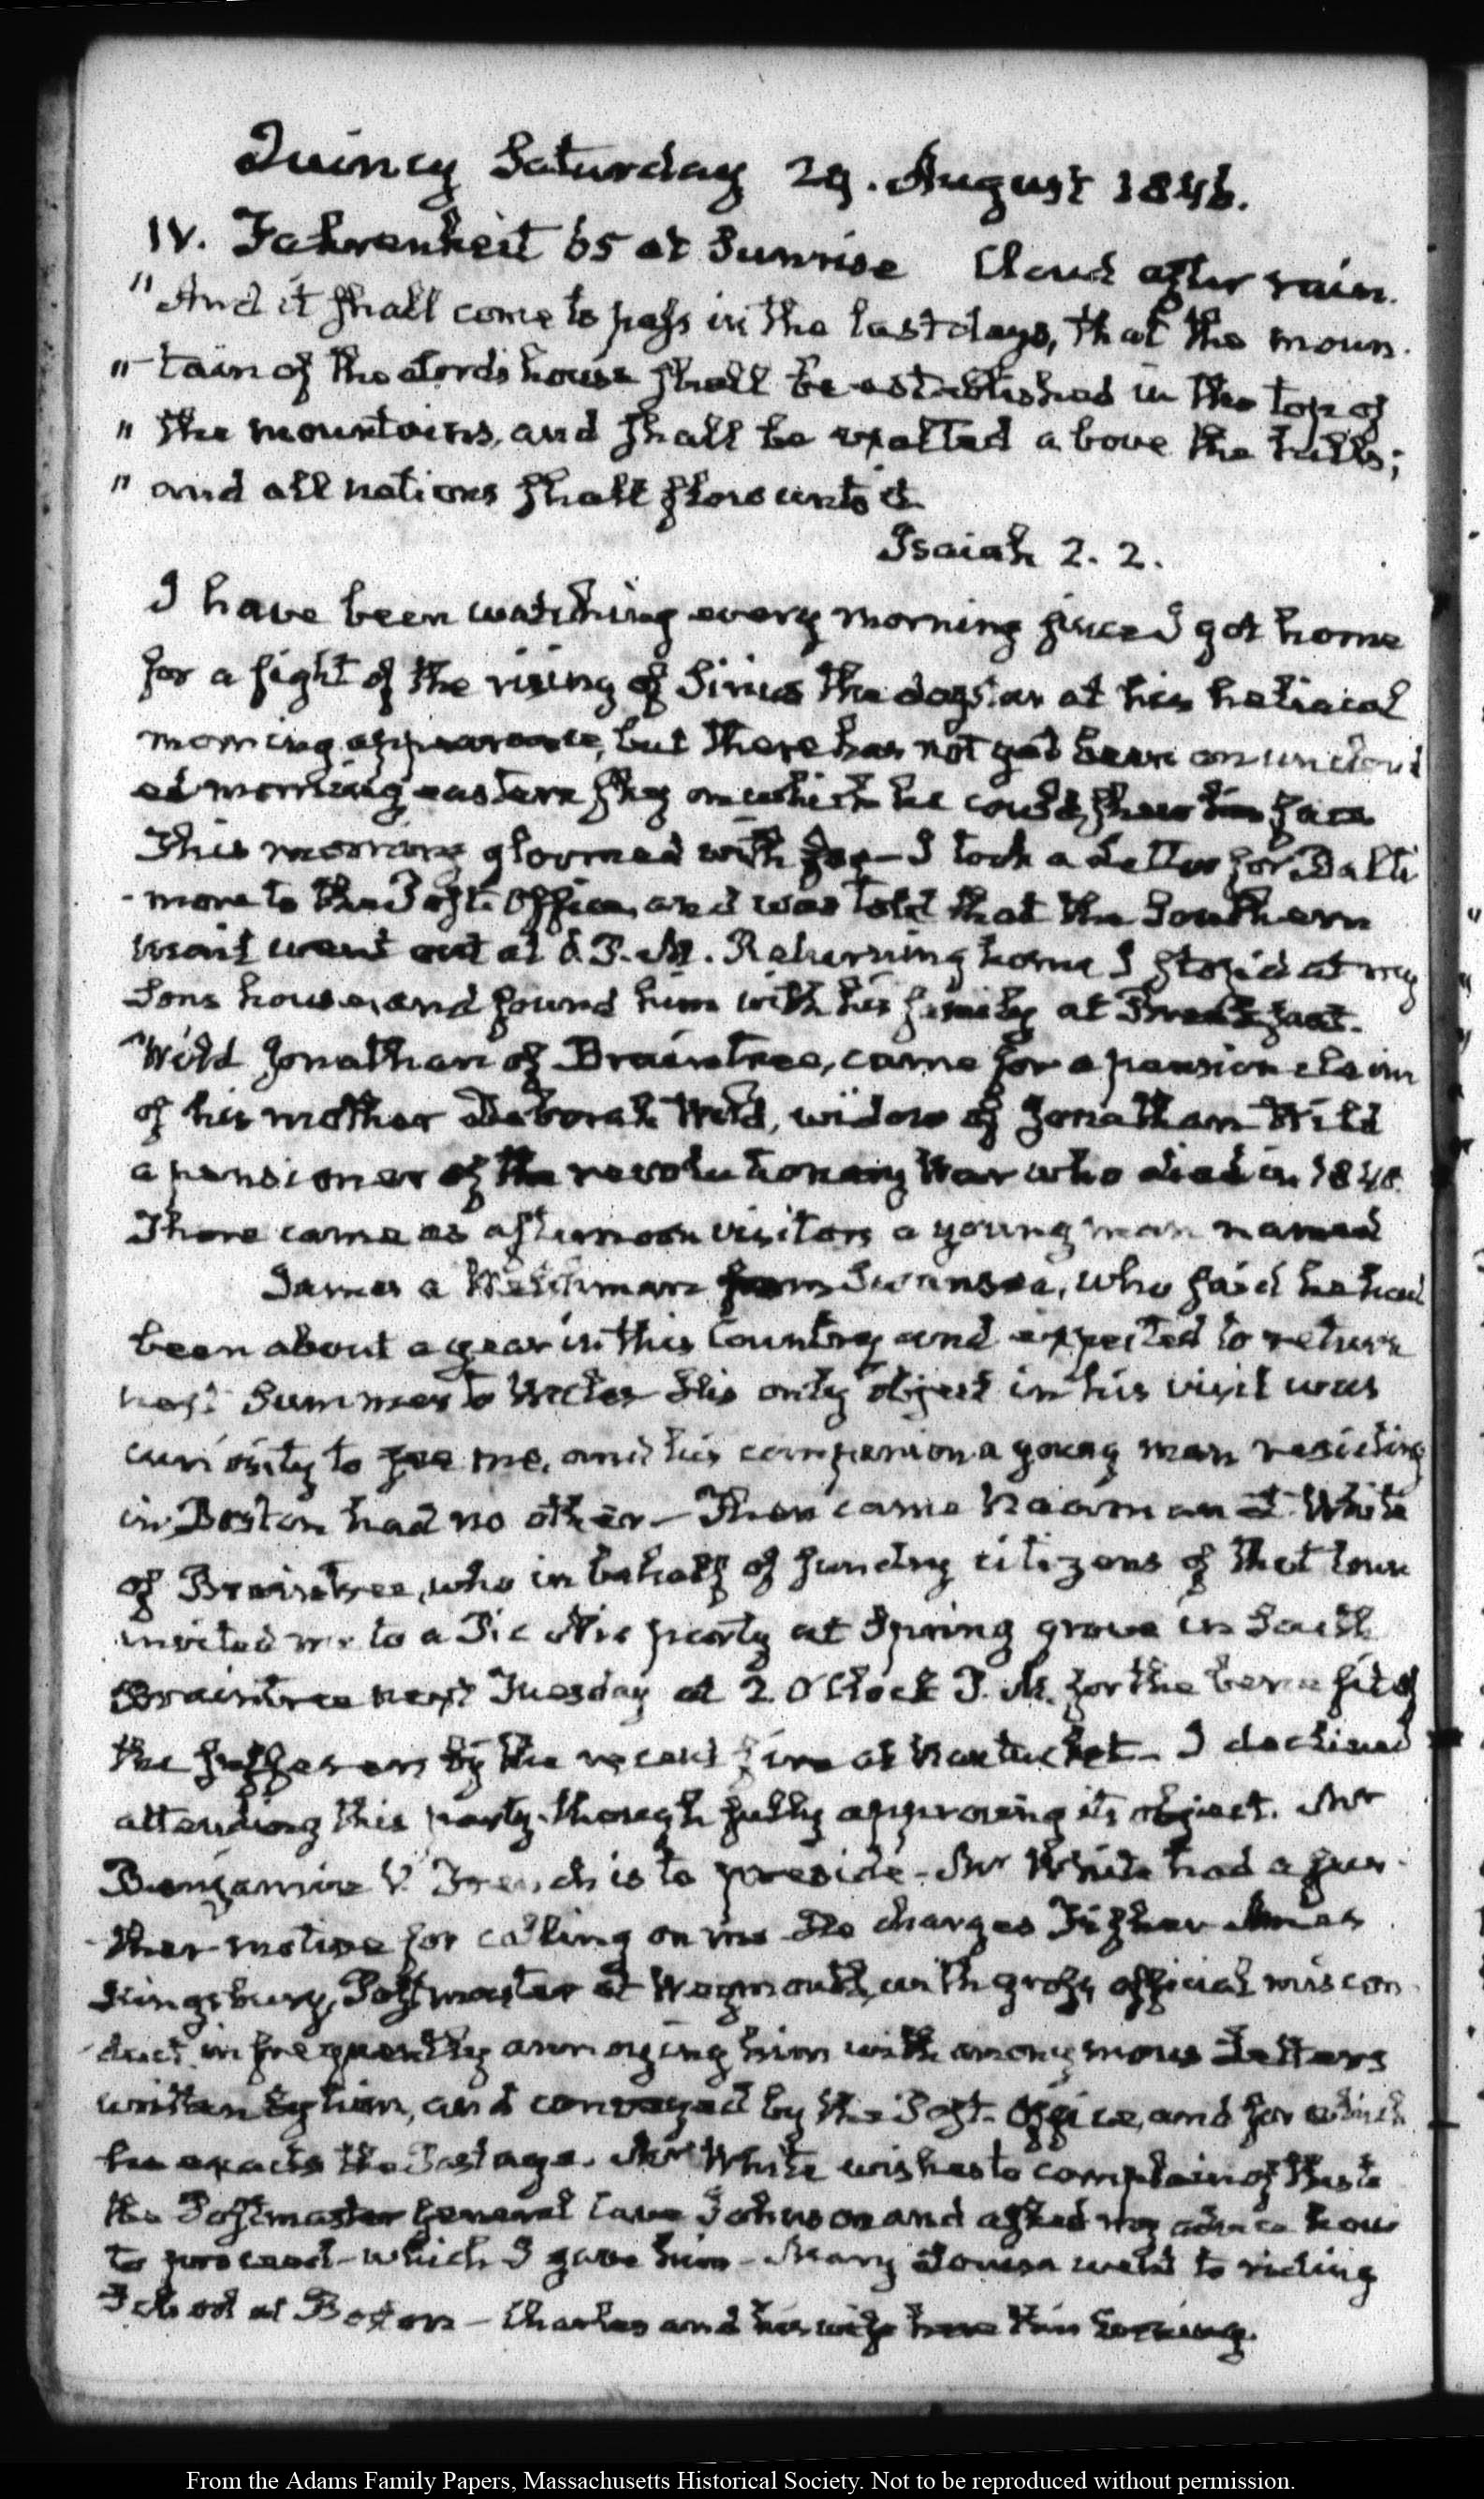 Quincy Saturday 29. August 1846.
IV. Fahrenheit 65 at Sunrise Cloud after rain.
"And it shall come to pass in the last days, that the moun-
"-tain of the Lords house shall be established in the top of
" the mountains, and shall be exalted above the hills;
" and all nations shall flow unto it.
Isaiah 2. 2.
I have been watching every morning since I got home
for a sight of the rising of Sirius the dogstar at his heliacal
morning appearance, but there has not yet been an uncloud
ed morning eastern sky on which he could shew his face
This morning gloomed with fog — I took a Letter for Balti
-more to the Post-Office, and was told that the Southern
mail went out at P.M. Returning home I stop'd at my
Sons house, and found him with his family at Breakfast.
Wild Jonathan of Braintree, came for a pension claim
of his mother Deborah Wild, widow of Jonathan Wild
a pensioner of the revolutionary War who died in 1840.
There came as afternoon visitors a young man named
James a Welchman from Swansea, who said he had
been about a year in this Country and expected to return
next Summer to Wales His only object in his visit was
curiosity to see me, and his companion a young man residing
in Boston had no other — Then came Naaman L. White
of Braintree, who in behalf of sundry citizens of that town
invited me to a Pic Nic party at Spring grove in South
Braintree next Tuesday at 2 O'Clock P.M. for the benefit of
the sufferers by the recent fire at Nantucket — I declined
attending this party though fully approving its object. Mr
Benjamin V. French is to preside — Mr White had a fur-
-ther motive for calling on me He charges Fisher Ames
Kingsbury, Postmaster at Weymouth, with gross official miscon
-duct in frequently annoying him with anonymous Letters
written by him, and conveyed by the Post-Office, and for which
he exacts the Postage. Mr White wishes to complain of this to
the Postmaster General Cave Johnson and asked my advice how
to proceed — which I gave him — Mary Louisa went to riding
School at Boston — Charles and his wife here this Evening.
From the Adams Family Papers, Massachusetts Historical Society. Not to be reproduced without permission.